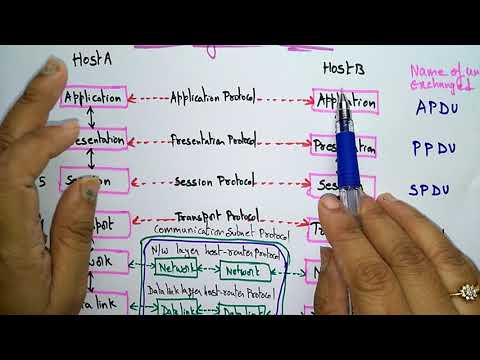 Host A
Host B
Name of un
exchanged
Application
Application Protocol
Application
APDU
esentation
Presentation Protocol
Pres tation
PPDU
5
Se ion
Session Protocol
Ses
SPDU
port
Transport Protocol
Communication Subnet Protocol
N/w layer host-router Protocol
work
Network
Network
Data link layer host-router Protocol
ta link
Data link